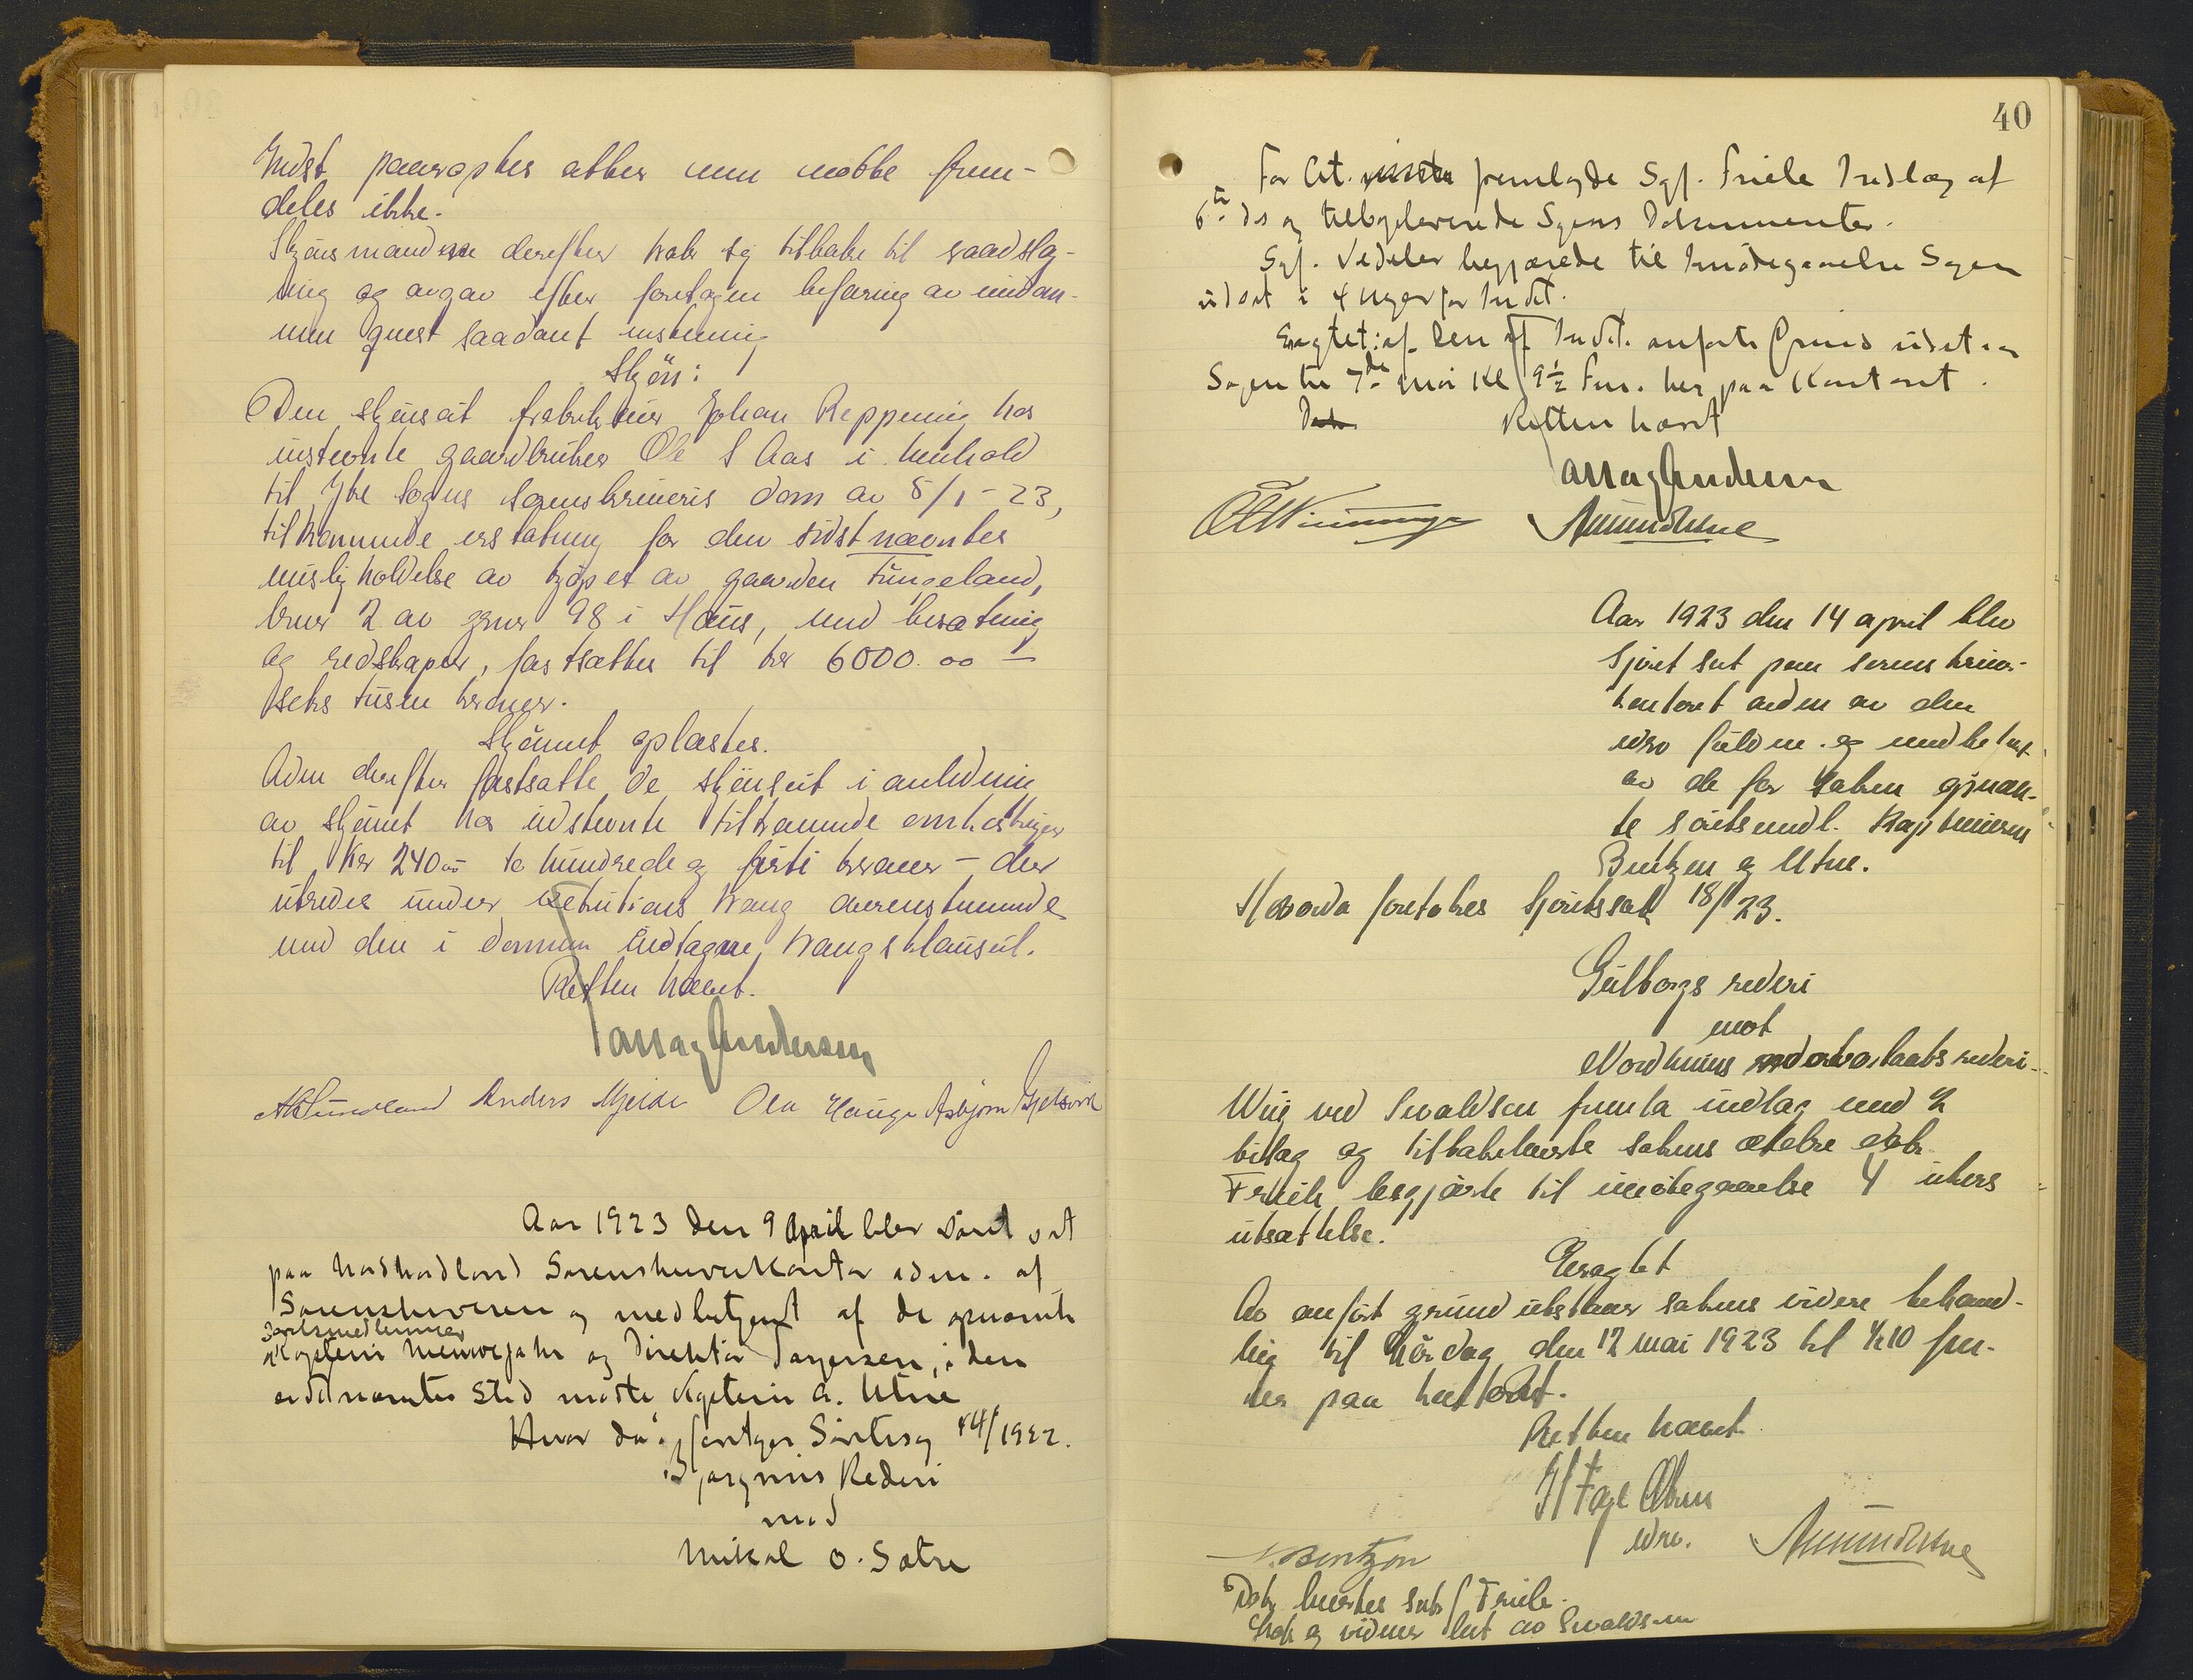 Indst paaroptes atter men møtte frem-
deles ikke.
Skjønsmændene derefter trak sig tilbake til raadslag-
ning og avgav efter foretagen befaring av eiendom-
men saadant enstemmig
Skjøn:
Den skjønset. fabrikeier Johan Reppening hos
instevnte gaardbruker Ole S Aas i henhold
til Ytre Sogns sorenskriveris dom av 5/1-23,
tilkommende erstatning for den sidstnævntes
misligholdelse av kjøpet av gaarden Tungeland,
bnr 2 av gnr 98 i Haus, med besætning
og redskaper, fastsættes til kr 6000.00 -
seks tusen kroner.
Skjønnet oplæstes.
Adm derefter fastsatte de skjønset i anledning
av skjønnet hos indstevnte tilkommende omkostninger
til Kr 240.00 to hundrede og førti kroner - der
utredes under tvang overensstemmende
med den i dommen indtagne tvangsklausul.
Retten hævet.
Mag Andersen
Anders Mjelde Ola Hauge Asbjørn Gjelsvik
Aar 1923 den 9 April blev Søret sat
paa Nordhordland Sorenskriverkontor adm. af
Sorenskriveren og medbetjent af de opnævnte
Søretsmedlemmer
Kaptein og Direktør Torgersen, i den
sidstnævntes Sted mødte Kaptein A. Utne
Hvor da: foretoges Søretssag 14/1922.
Bjørgvins Rederi
mod
Mikal O. Sætre
40
For Cit. fremlagde Sgf. Friele Indlæg af
6te ds og tilbageleverede Sagens Dokumenter.
Sgf. Vedeler begjærede til Imødegaaelse Sagen
udsat i 4 uger for Indst.
Eragtet: af den af Indst. anførte Grund udsættes
Sagen til 7de Mai Kl 9½ Fm. her paa Kontoret.
Retten hævet
Mag Andersen
Amund Utne
Aar 1923 den 14 april blev
Sjøret sat paa sorenskriver-
kontoret adm. av den
edsv fuldm. og medbetjent
av de for saken opnævn-
te sjøretsmedl. Kapteinerne
Bentzon og Utne.
Hvorda foretokes Sjøretssak 18/23.
Gulborgs rederi
mot
Nordhuus motorbaatsrederi.
Wiig ved Sivaldsen fremla indlæg med 2
bilag og tilbakeleverte sakens ældre dok.
Friele begjærte til imøtegaaelse 4 ukers
utsættelse.
Eragtet
Av anført grund utstaar sakens videre behand-
ling til Lørdag den 12 mai 1923 kl ½10 fm.
her paa kontoret.
Retten hævet
edsv.
N. Bentzon Amund Utne
Dok leveres Sakf Friele.